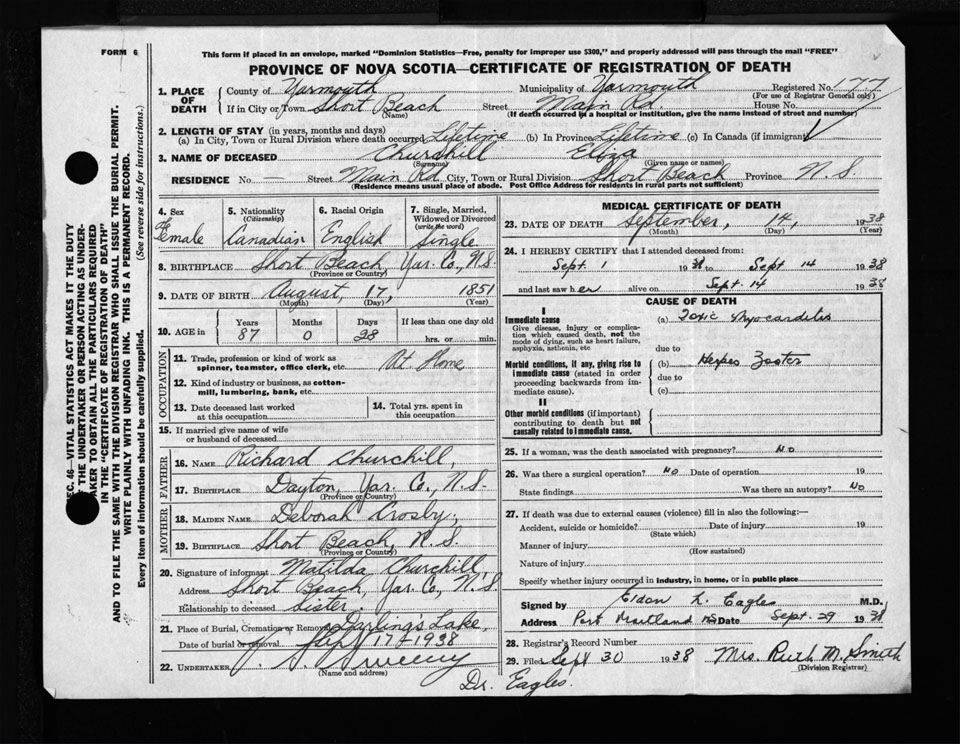 FORM 6
This form if placed in an envelope, marked "Dominion Statistics—Free, penalty for improper use $300," and properly addressed will pass through the mail "FREE"
PROVINCE OF NOVA SCOTIA—CERTIFICATE OF REGISTRATION OF DEATH
1. PLACE OF DEATH County of Yarmouth Municipality of Yarmouth Registered No. 177
(For use of Registrar General only)
If in City or Town Short Beach Street Main Rd. House No.
(Name) (If death occurred in a hospital or institution, give the name instead of street and number)
2. LENGTH OF STAY (in years, months and days)
(a) In City, Town or Rural Division where death occurred Lifetime (b) In Province Lifetime (c) In Canada (if immigrant)
3. NAME OF DECEASED Churchill Eliza
(Surname) (Given name or names)
RESIDENCE No. — Street Main Rd City, Town or Rural Division Short Beach Province N.S.
(Residence means usual place of abode. Post Office Address for residents in rural parts not sufficient)
4. Sex Female
5. Nationality (Citizenship) Canadian
6. Racial Origin English
7. Single, Married, Widowed or Divorced (write the word) Single
8. BIRTHPLACE Short Beach, Yar. Co., N.S.
(Province or Country)
9. DATE OF BIRTH August, 17, 1851
(Month) (Day) (Year)
10. AGE in Years Months Days If less than one day old
87 0 28 hrs. or min.
OCCUPATION
11. Trade, profession or kind of work as spinner, teamster, office clerk, etc. At Home
12. Kind of industry or business, as cotton-mill, lumbering, bank, etc.
13. Date deceased last worked at this occupation
14. Total yrs. spent in this occupation
15. If married give name of wife or husband of deceased
FATHER
16. NAME Richard Churchill,
17. BIRTHPLACE Dayton, Yar. Co., N.S.
(Province or Country)
MOTHER
18. MAIDEN NAME Deborah Crosby,
19. BIRTHPLACE Short Beach, N.S.
(Province or Country)
20. Signature of informant Matilda Churchill
Address Short Beach, Yar. Co, N.S.
Relationship to deceased Sister.
21. Place of Burial, Cremation or Removal Darlings Lake,
Date of burial or removal Sept 17th 1938
22. UNDERTAKER J. S. Sweeny
(Name and address)
Dr. Eagles.
MEDICAL CERTIFICATE OF DEATH
23. DATE OF DEATH September, 14, 1938
(Month) (Day) (Year)
24. I HEREBY CERTIFY that I attended deceased from:
Sept. 1 1938 to Sept 14 1938
and last saw her alive on Sept. 14 1938
CAUSE OF DEATH
I
Immediate cause (a) Toxic Myocarditis
Give disease, injury or complication which caused death, not the mode of dying, such as heart failure, asphyxia, asthenia, etc
due to
Morbid conditions, if any, giving rise to immediate cause (stated in order proceeding backwards from immediate cause). (b) Herpes Zoster
due to
(c)
II
Other morbid conditions (if important) contributing to death but not causally related to immediate cause.
25. If a woman, was the death associated with pregnancy? No
26. Was there a surgical operation? No Date of operation 19
State findings Was there an autopsy? No
27. If death was due to external causes (violence) fill in also the following:—
Accident, suicide or homicide? Date of injury 19
(State which)
Manner of injury
(How sustained)
Nature of injury
Specify whether injury occurred in industry, in home, or in public place
Signed by Eldon L. Eagles M.D.
Address Port Maitland NS Date Sept. 29 1938
28. Registrar's Record Number
29. Filed Sept 30 1938 Mrs. Ruth M. Smith
(Division Registrar)
SEC. 46—VITAL STATISTICS ACT MAKES IT THE DUTY
OF THE UNDERTAKER OR PERSON ACTING AS UNDER-
TAKER TO OBTAIN ALL THE PARTICULARS REQUIRED
IN THE "CERTIFICATE OF REGISTRATION OF DEATH"
AND TO FILE THE SAME WITH THE DIVISION REGISTRAR WHO SHALL ISSUE THE BURIAL PERMIT.
WRITE PLAINLY WITH UNFADING INK. THIS IS A PERMANENT RECORD.
Every item of information should be carefully supplied. (See reverse side for instructions.)